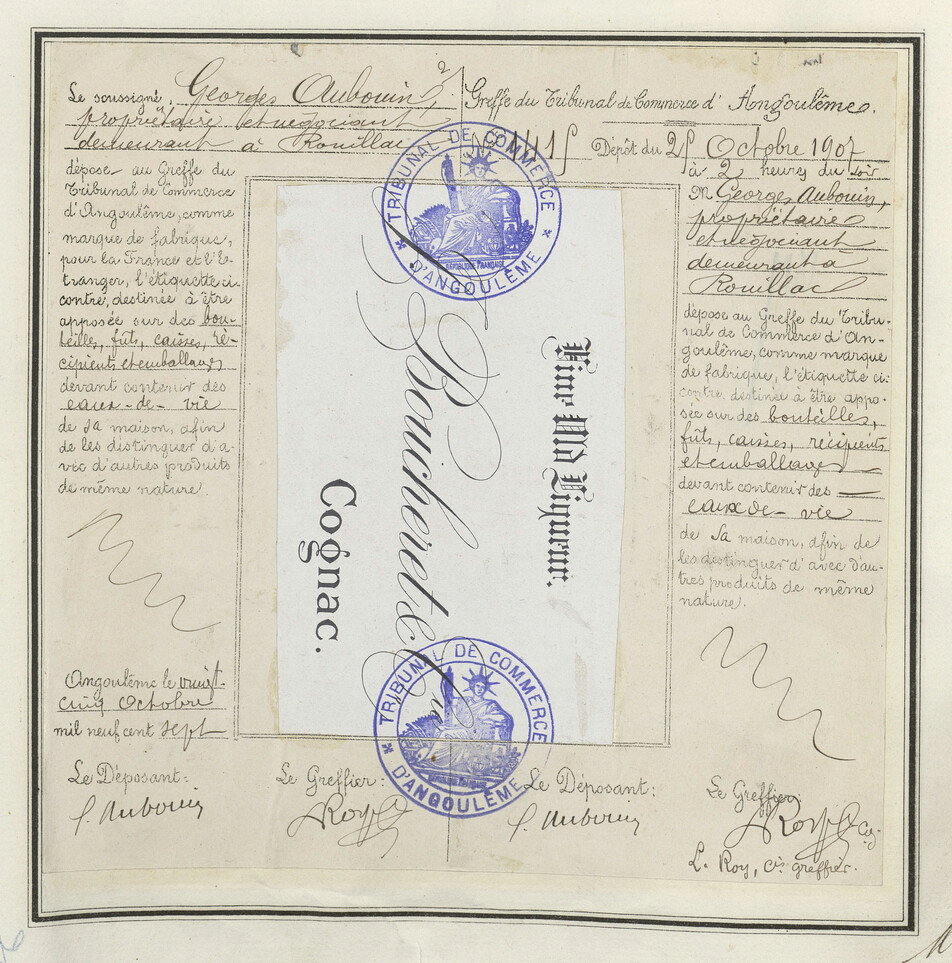 Le soussigné, Georges Aubouin,
propriétaire et négociant
demeurant à Rouillac
dépose au Greffe du
Tribunal de Commerce
d'Angoulême, comme
marque de fabrique,
pour la France et l'É-
tranger, l'étiquette ci-
contre, destinée à être
apposée sur des bou-
teilles, fûts, caisses, ré-
cipients et emballages
devant contenir des
eaux-de-vie
de sa maison, afin
de les distinguer d'a-
vec d'autres produits
de même nature.
Angoulême le vingt-
cinq Octobre
mil neuf cent sept
Le Déposant:
G. Aubouin
Le Greffier:
Roy
TRIBUNAL DE COMMERCE
D'ANGOULÊME
RÉPUBLIQUE FRANÇAISE
Fine Old Liqueur.
Boucheret & Cie
Cognac.
TRIBUNAL DE COMMERCE
D'ANGOULÊME
Greffe du Tribunal de Commerce d'Angoulême.
Dépôt du 25 Octobre 1907
à 2 heures du soir
M. Georges Aubouin,
propriétaire
et négociant
demeurant à
Rouillac
dépose au Greffe du Tribu-
nal de Commerce d'An-
goulême, comme marque
de fabrique, l'étiquette ci-
contre, destinée à être appo-
sée sur des bouteilles,
fûts, caisses, récipients
et emballages
devant contenir des
eaux-de-vie
de sa maison, afin de
les distinguer d'avec d'au-
tres produits de même
nature.
Le Déposant:
G. Aubouin
Le Greffier:
Roy
L. Roy, cis greffier.